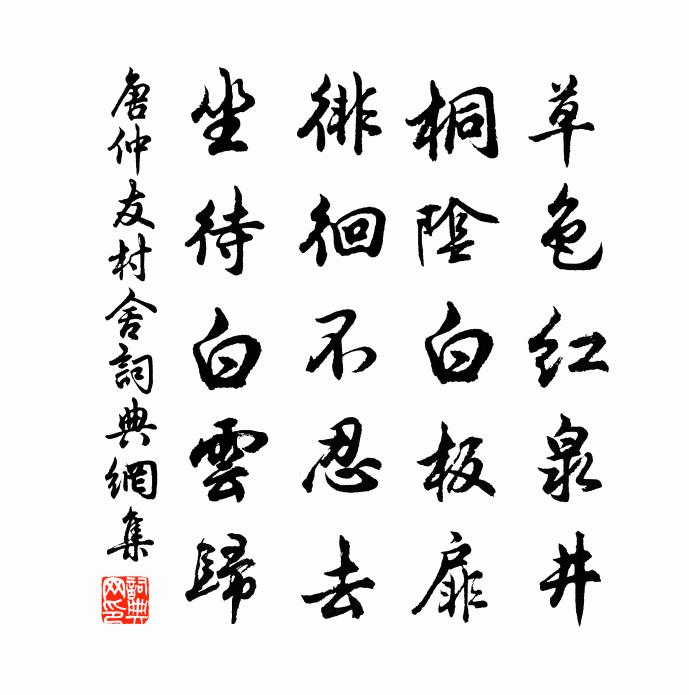 草色紅泉井
桐陰白板扉
徘徊不忍去
坐待白雲歸
唐仲友村舍詞典網集
詞典網印